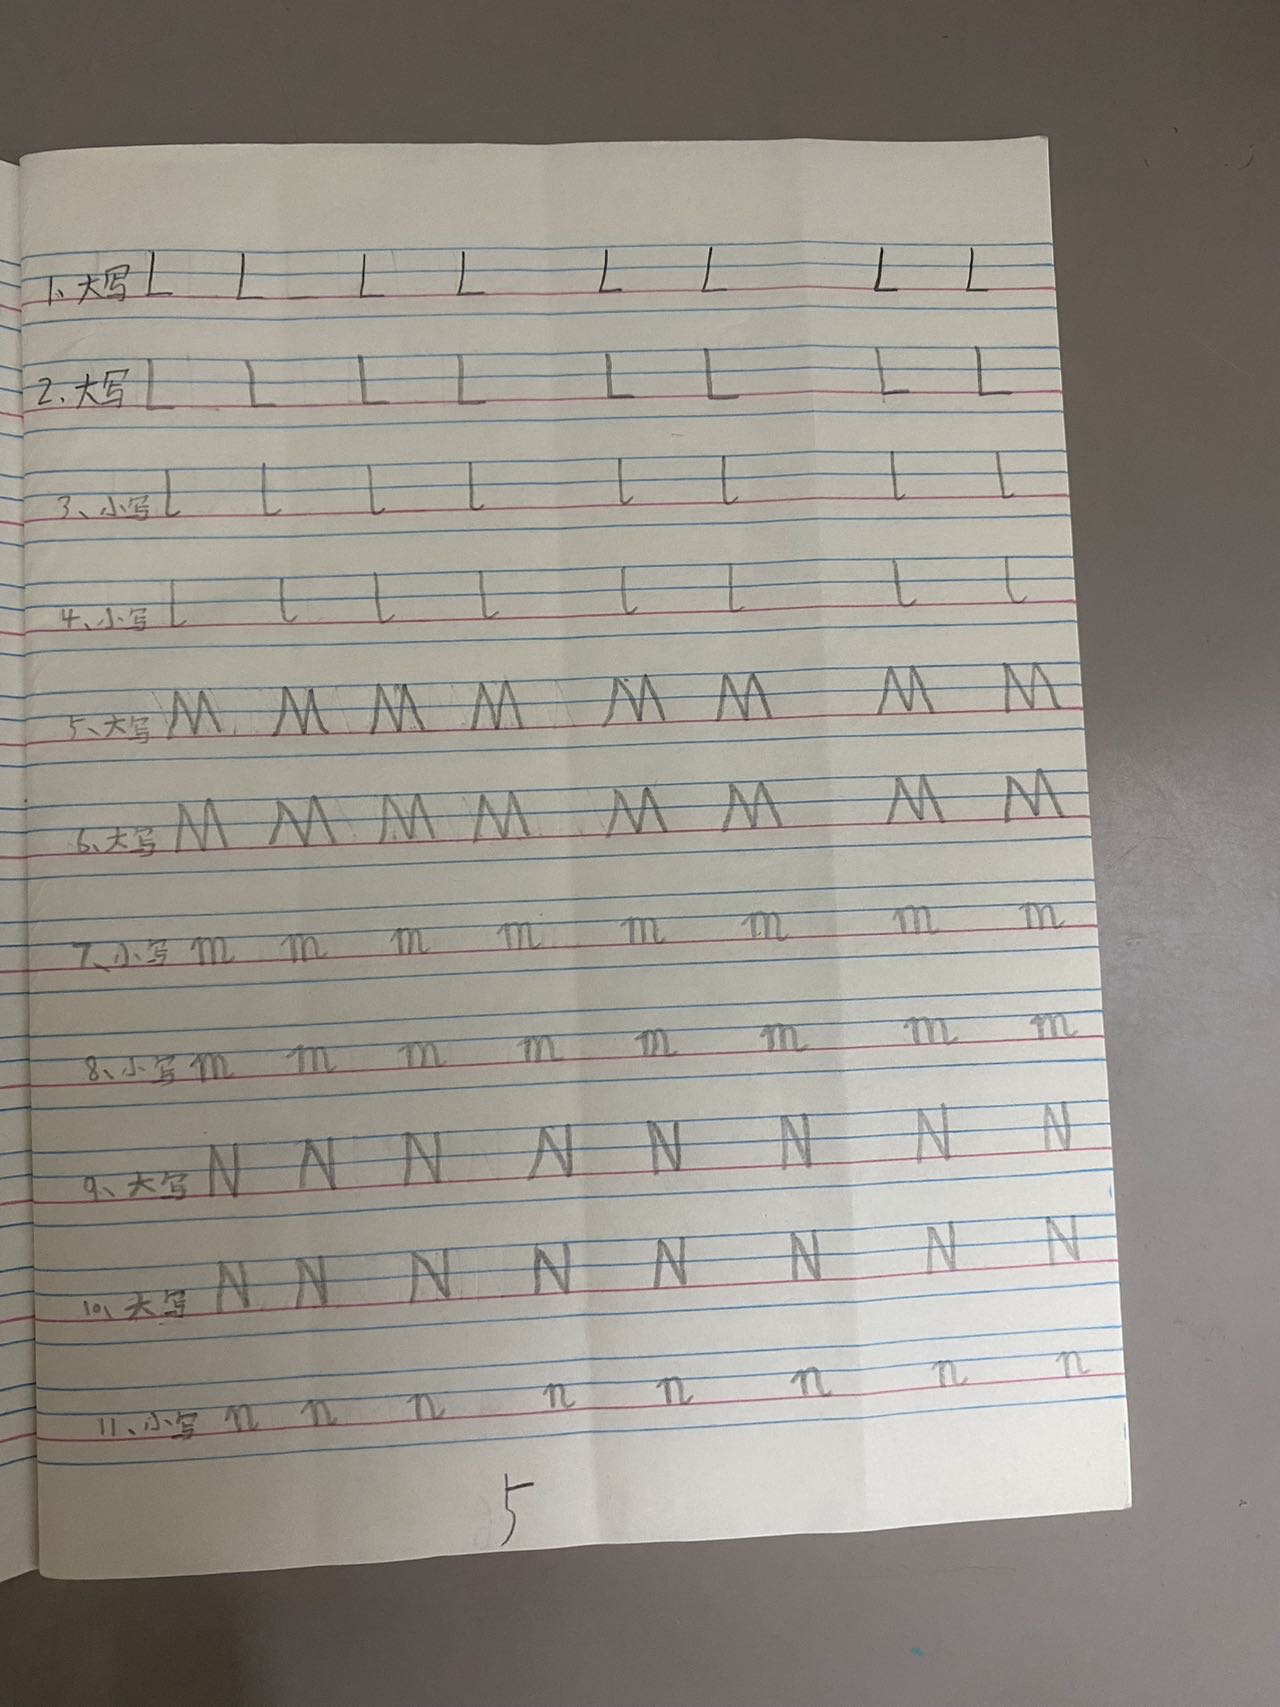 1、大写 L L L L L L L L
2、大写 L L L L L L L L
3、小写 l l l l l l l l
4、小写 l l l l l l l l
5、大写 M M M M M M M M
6、大写 M M M M M M M M
7、小写 m m m m m m m m
8、小写 m m m m m m m m
9、大写 N N N N N N N N
10、大写 N N N N N N N N
11、小写 n n n n n n n n
5